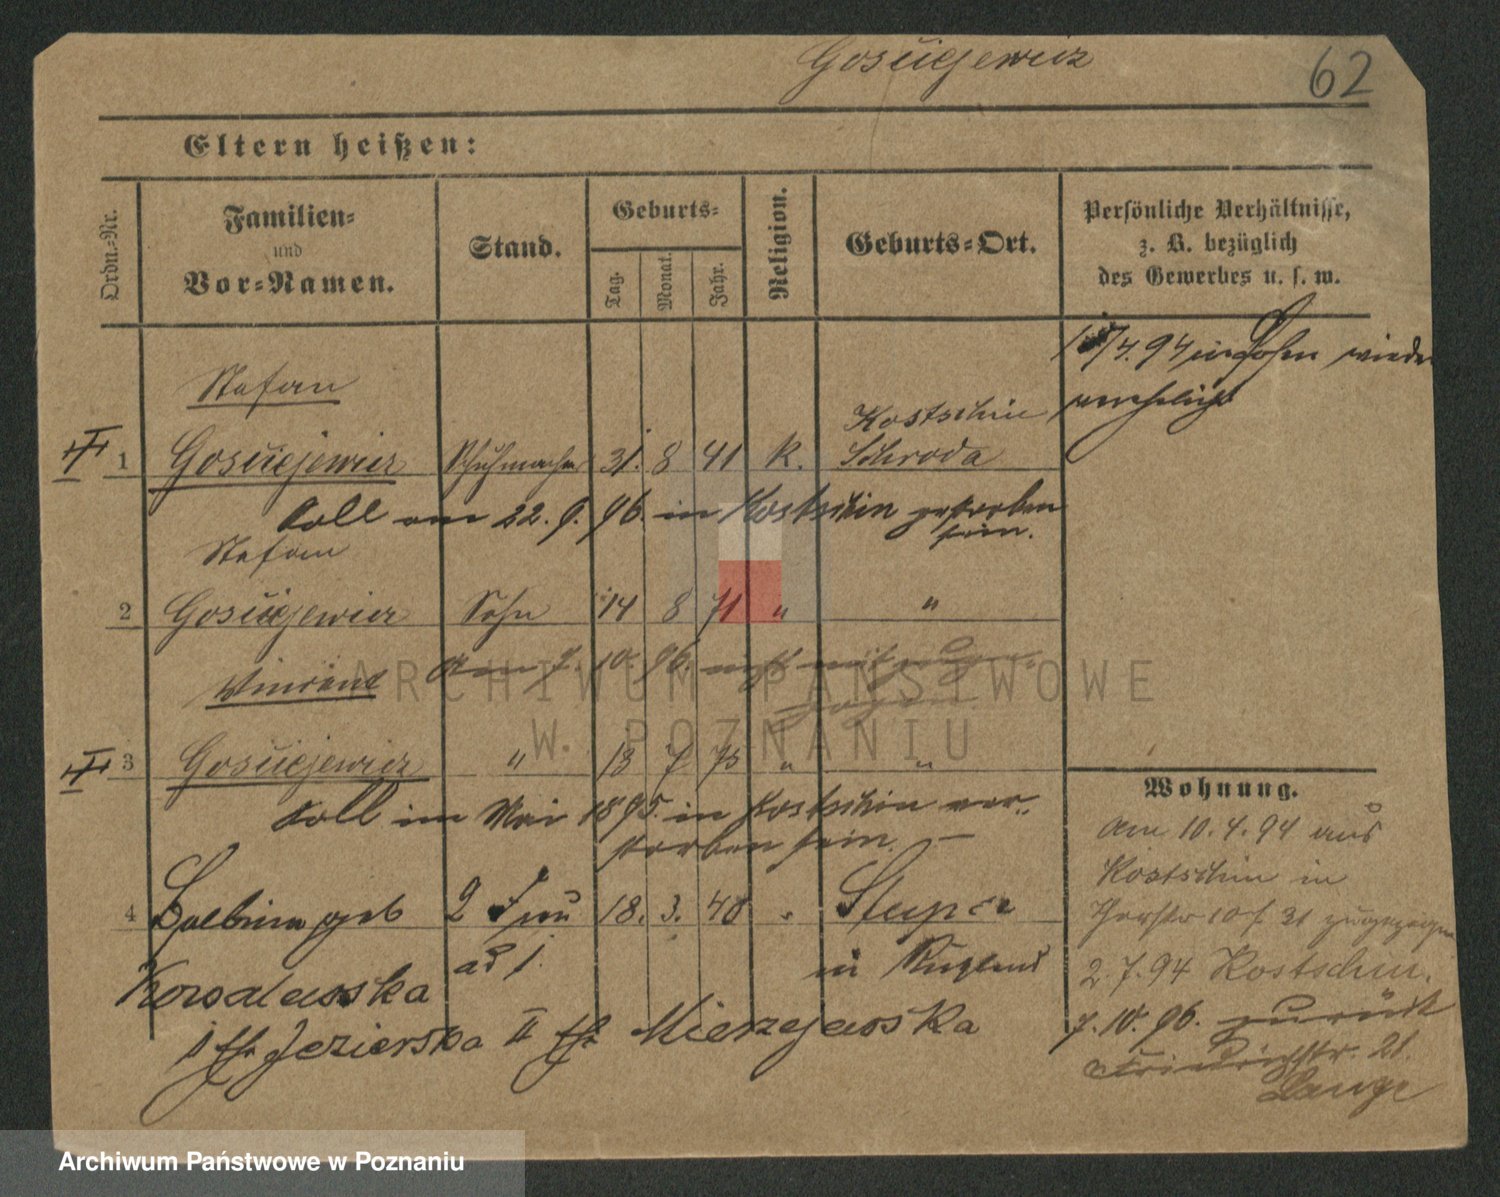 Gościejewicz
62
Eltern heißen:
Ordn.-Nr.
Familien-
und
Vor-Namen.
Stand.
Geburts-
Tag.
Monat.
Jahr.
Religion.
Geburts-Ort.
Persönliche Verhältnisse,
z. B. bezüglich
des Gewerbes u. s. w.
17/4. 94 in Posen wieder
verehelicht
Stefan
Kostschin
1 Gościejewicz Schuhmacher 31. 8 41 K. Schroda
Soll am 22. 9. 96. in Kostschin gestorben
sein.
Stefan
2 Gościejewicz Sohn 14 8 71 " "
Am 7. 10. 96. nicht mit zuge-
zogen
Vincent
3 Gościejewicz " 13 7 75 " "
Soll im Mai 1895. in Kostschin ver-
storben sein. —
4 Balbina geb 2 Frau 18. 3. 48 " Slupce
Kowalewska ad 1. in Rußland
I fr Jezierska II fr Mierzejewska
Wohnung.
Am 10. 4. 94 aus
Kostschin in
10 f. 31 zugezogen
2. 7. 94 Kostschin.
7. 10. 96. zurück
Friedrichstr. 21.
Lange
ARCHIWUM PAŃSTWOWE
W POZNANIU
Archiwum Państwowe w Poznaniu